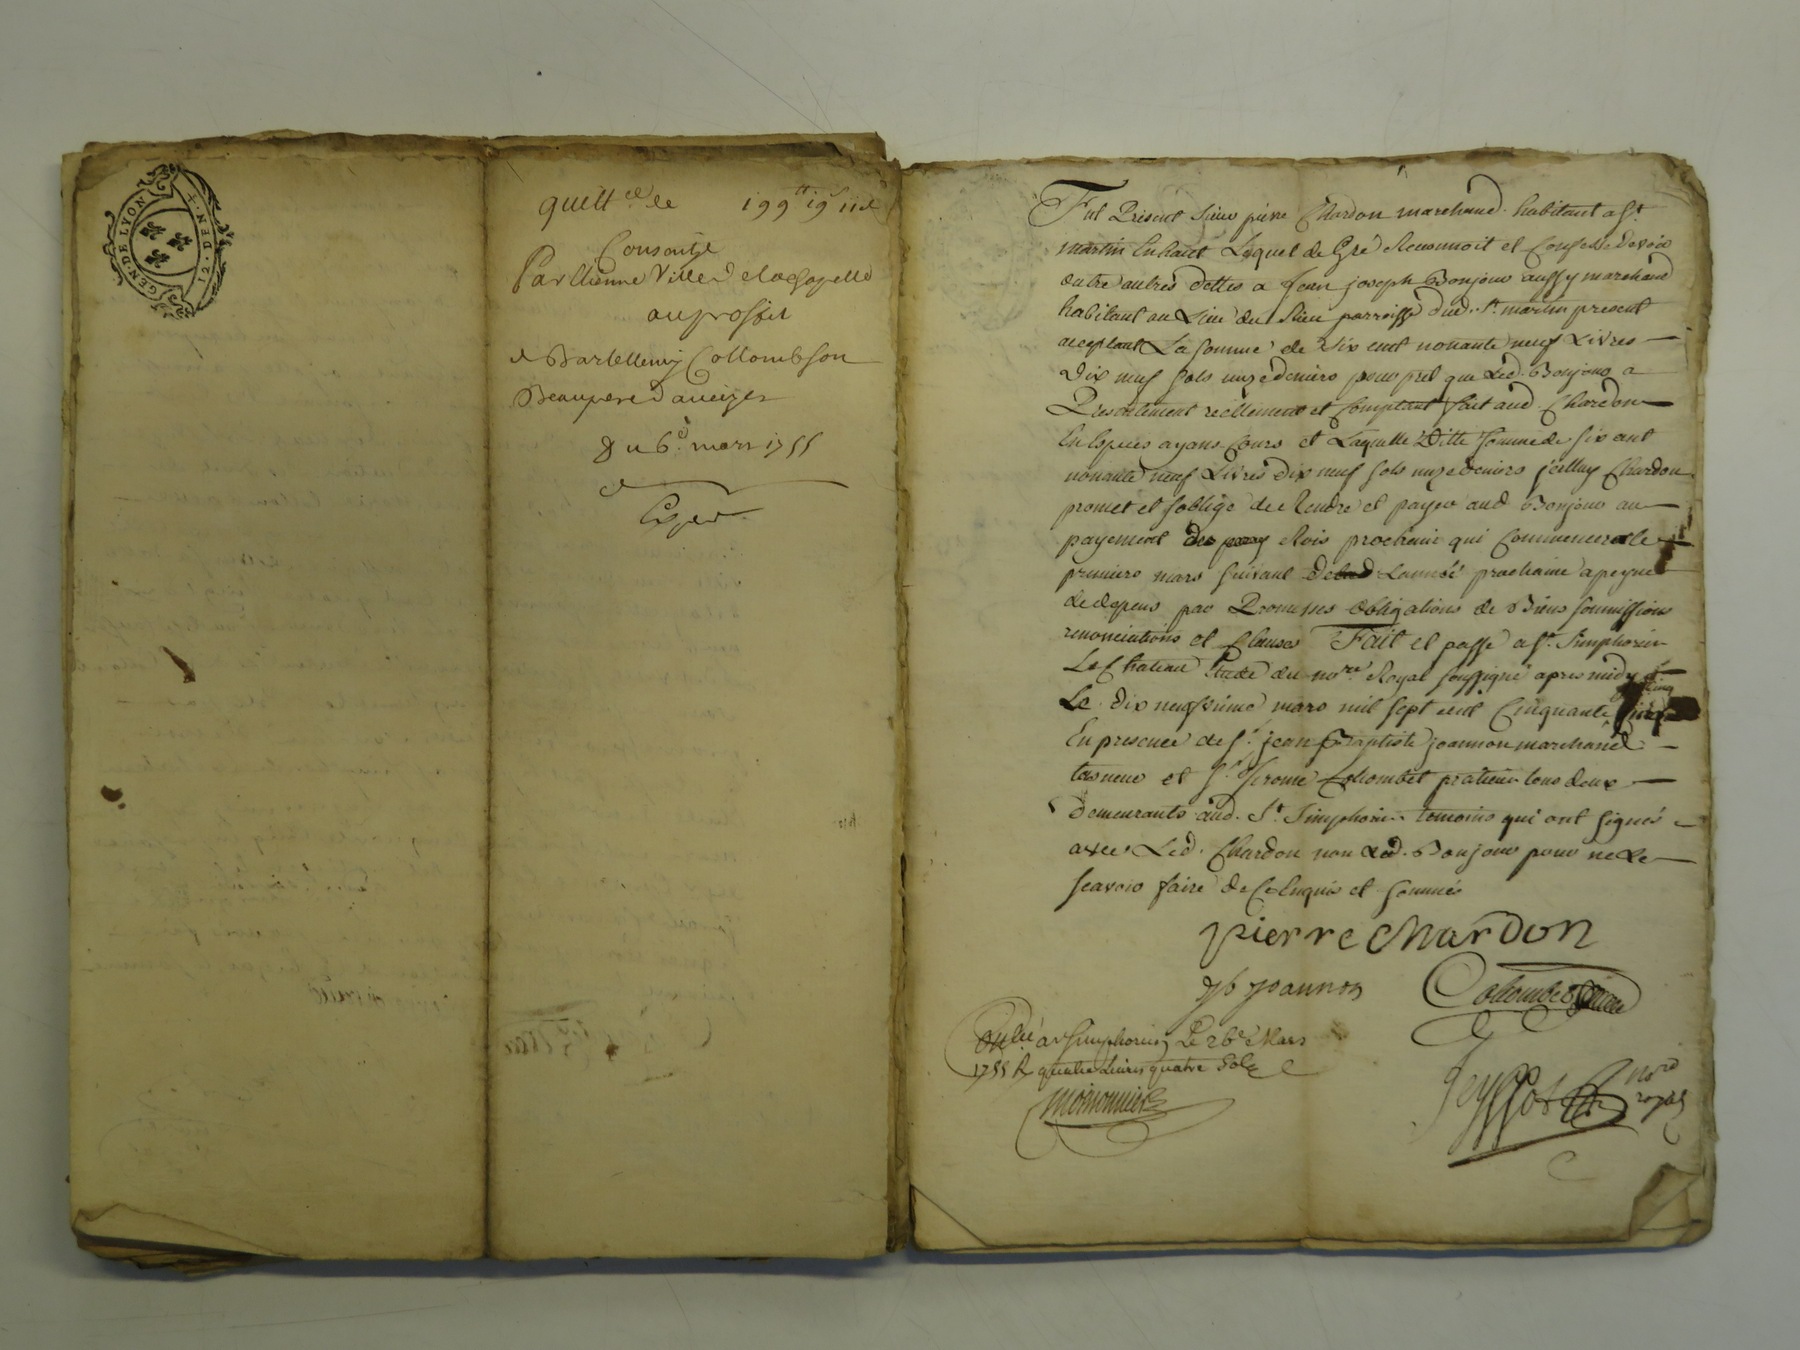 GEN·DE·LYON
·I·2·DEN·
quitt.ce de 199tt 19s 11d
Consentie
Par Etienne Ville de lachapelle
au proffit
de Bartellemy Collombson
Beaupere d'aveizes
Du 6.e mars 1755
Fut Present sieur pierre Chardon marchand habitant a St.
martin En haut Lequel de Gré Reconnoit et Confesse devoir
outre autres dettes a jean joseph Bonjour aussy marchand
habitant au Lieu du Rieu parroisse dud. St. martin present
acceptant La somme de six cent nonante neuf Livres
Dix neuf sols unze deniers pour prest que Led. Bonjour a
Presentement reellement et Comptant fait aud Chardon
En Especes ayans Cours et Laquelle Ditte somme de six cent
nonante neuf Livres dix neuf sols unze deniers icelluy Chardon
promet et soblige de Rendre et payer aud Bonjour au
payement des Rois prochain qui Commencera le
premiers mars suivant Lannéé prochaine a peyne
de depens par Promesses obligations de Biens soumissions
renonciations et Clauses Fait et passé a St. Simphorien
Le Chateau Etude du no.re Royal soussigné apres midy
Le dix neufvieme mars mil sept cent Cinquante cinq
En presence de Sr. jean Baptiste joannon marchand
tanneur et Sr. Jerome Collombet praticien tous deux
Demeurants aud. St. Simphorien temoins qui ont signés
avec Led. Chardon non Led. Bonjour pour ne Le
scavoir faire de Ce Enquis et sommés
pierre Chardon
jb joannon Collombet
Con.lé a St Simphorien Le 26e Mars
1755 R quatre Livres quatre sols
no.re
royal